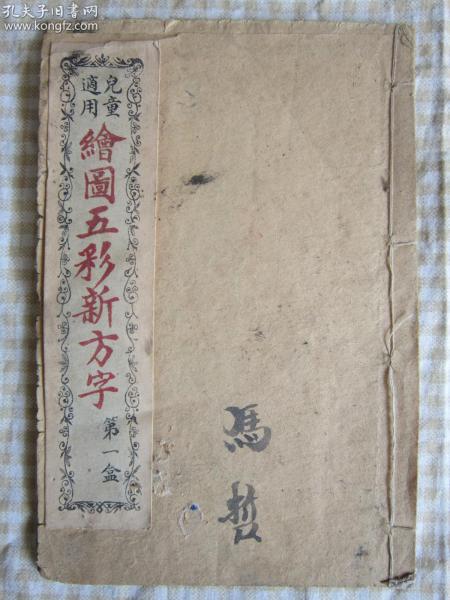 孔夫子旧书网
www.kongfz.com
兒童
適用
繪圖五彩新方字
第一盒
馮
哲